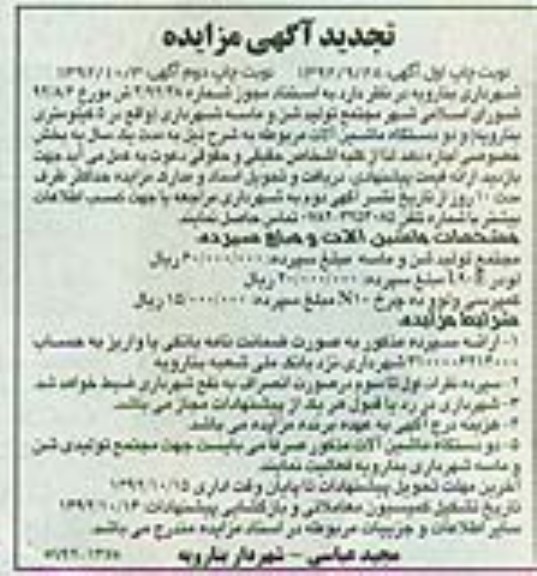 تجدید آگهی مزایده
نوبت چاپ اول آگهی: ۱۳۹۲/۹/۲۵ نوبت چاپ دوم آگهی: ۱۳۹۲/۱۰/۳
شهرداری بنارویه در نظر دارد به استناد مجوز شماره ش مورخ
شورای اسلامی شهر مجتمع تولید شن و ماسه شهرداری (واقع در ۵ کیلومتری
بنارویه) و دو دستگاه ماشین آلات مربوطه به شرح ذیل به مدت یک سال به بخش
خصوصی اجاره دهد لذا از کلیه اشخاص حقیقی و حقوقی دعوت به عمل می آید جهت
بازدید ارائه قیمت پیشنهادی، دریافت و تحویل اسناد و مدارک مزایده حداکثر ظرف
مدت ۱۰ روز از تاریخ نشر آگهی دوم به شهرداری مراجعه یا جهت کسب اطلاعات
بیشتر با شماره تلفن تماس حاصل نمایند.
مشخصات ماشین آلات و مبلغ سپرده:
مجتمع تولید شن و ماسه مبلغ سپرده: ۶۰/۰۰۰/۰۰۰ ریال
لودر مبلغ سپرده: ۲۰/۰۰۰/۰۰۰ ریال
کمپرسی ولوو ده چرخ N۱۰ مبلغ سپرده: ۱۵/۰۰۰/۰۰۰ ریال
شرایط مزایده:
۱- ارائه سپرده مذکور به صورت ضمانت نامه بانکی یا واریز به حساب
شهرداری نزد بانک ملی شعبه بنارویه
۲- سپرده نفرات اول تا سوم درصورت انصراف به نفع شهرداری ضبط خواهد شد.
۳- شهرداری در رد یا قبول هر یک از پیشنهادات مجاز می باشد.
۴- هزینه درج آگهی به عهده برنده مزایده می باشد.
۵- دو دستگاه ماشین آلات مذکور صرفا می بایست جهت مجتمع تولیدی شن
و ماسه شهرداری بنارویه فعالیت نمایند.
آخرین مهلت تحویل پیشنهادات تا پایان وقت اداری ۱۳۹۲/۱۰/۱۵
تاریخ تشکیل کمیسیون معاملاتی و بازگشایی پیشنهادات: ۱۳۹۲/۱۰/۱۶
سایر اطلاعات و جزییات مربوطه در اسناد مزایده مندرج می باشد.
مجید عباسی - شهردار بنارویه